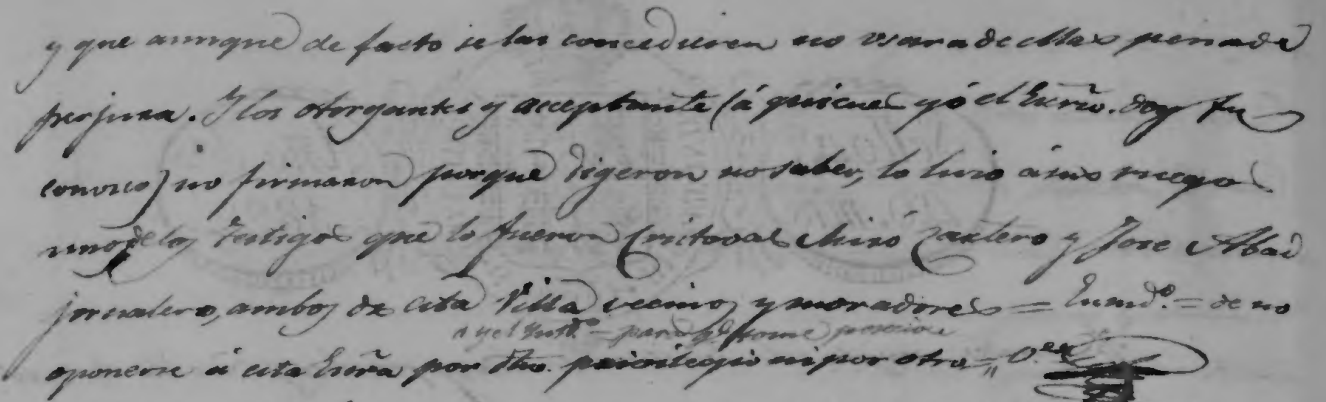 y que aunque de facto se las concedieren no usara de ellas pena de
perjura. Y los otorgantes y acceptante (á quienes yó el Esño. doy fee
conozco) no firmaron porque digeron no saber, lo hizo á sus ruegos
uno de los testigos que lo fueron Cristoval Miró Cantero y Jose Abad
jornalero, ambos de esta Villa vecinos y moradores = Enmdo. = de no
y el Entdo. = para q tome posesion
oponerse á esta Esñra por dho. privilegio ni por otro =